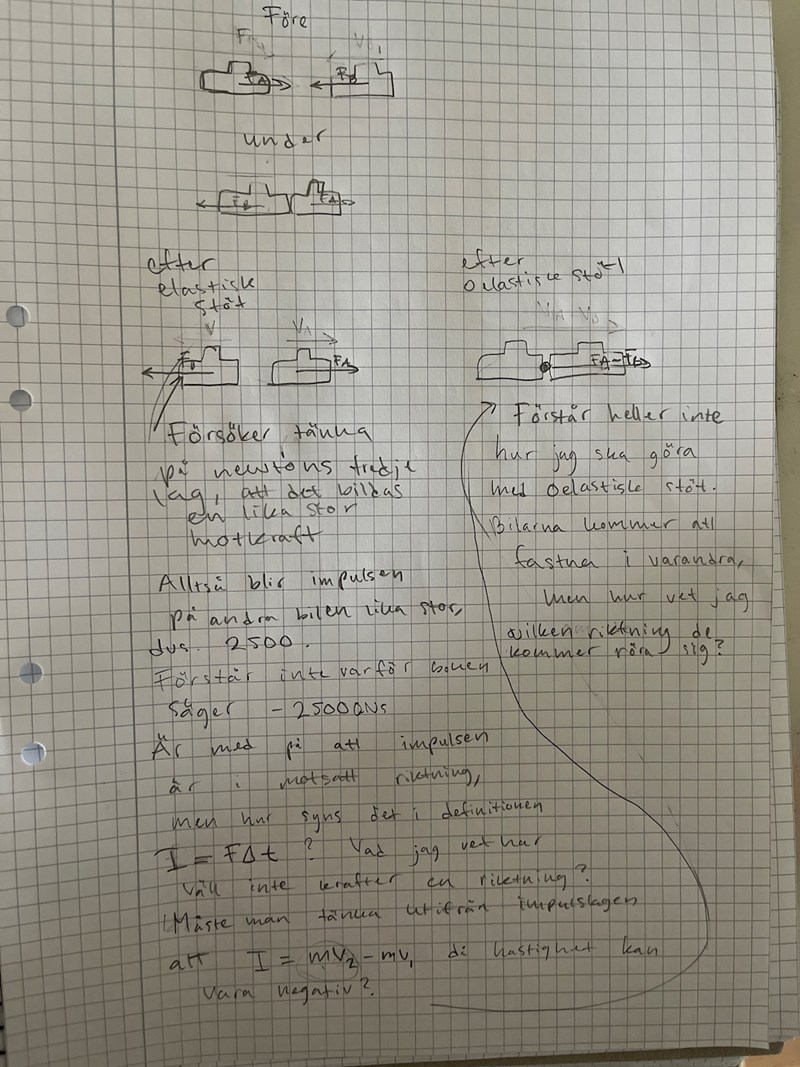 Före
FA
FB
under
FB
FA
efter
elastisk
stöt
V
VA
FB
FA
Försöker tänka
på newtons tredje
lag, att det bildas
en lika stor
motkraft
Alltså blir impulsen
på andra bilen lika stor,
dvs. 2500.
Förstår inte varför boken
säger -25000Ns
Är med på att impulsen
är i motsatt riktning,
men hur syns det i definitionen
I = FΔt ? Vad jag vet har
väll inte krafter en riktning?
Måste man tänka utifrån impulslagen
att I = mV2 - mV1 då hastighet kan
vara negativ?
efter
oelastisk stöt
FA-FB
Förstår heller inte
hur jag ska göra
med oelastisk stöt.
Bilarna kommer att
fastna i varandra,
men hur vet jag
vilken riktning de
kommer röra sig?